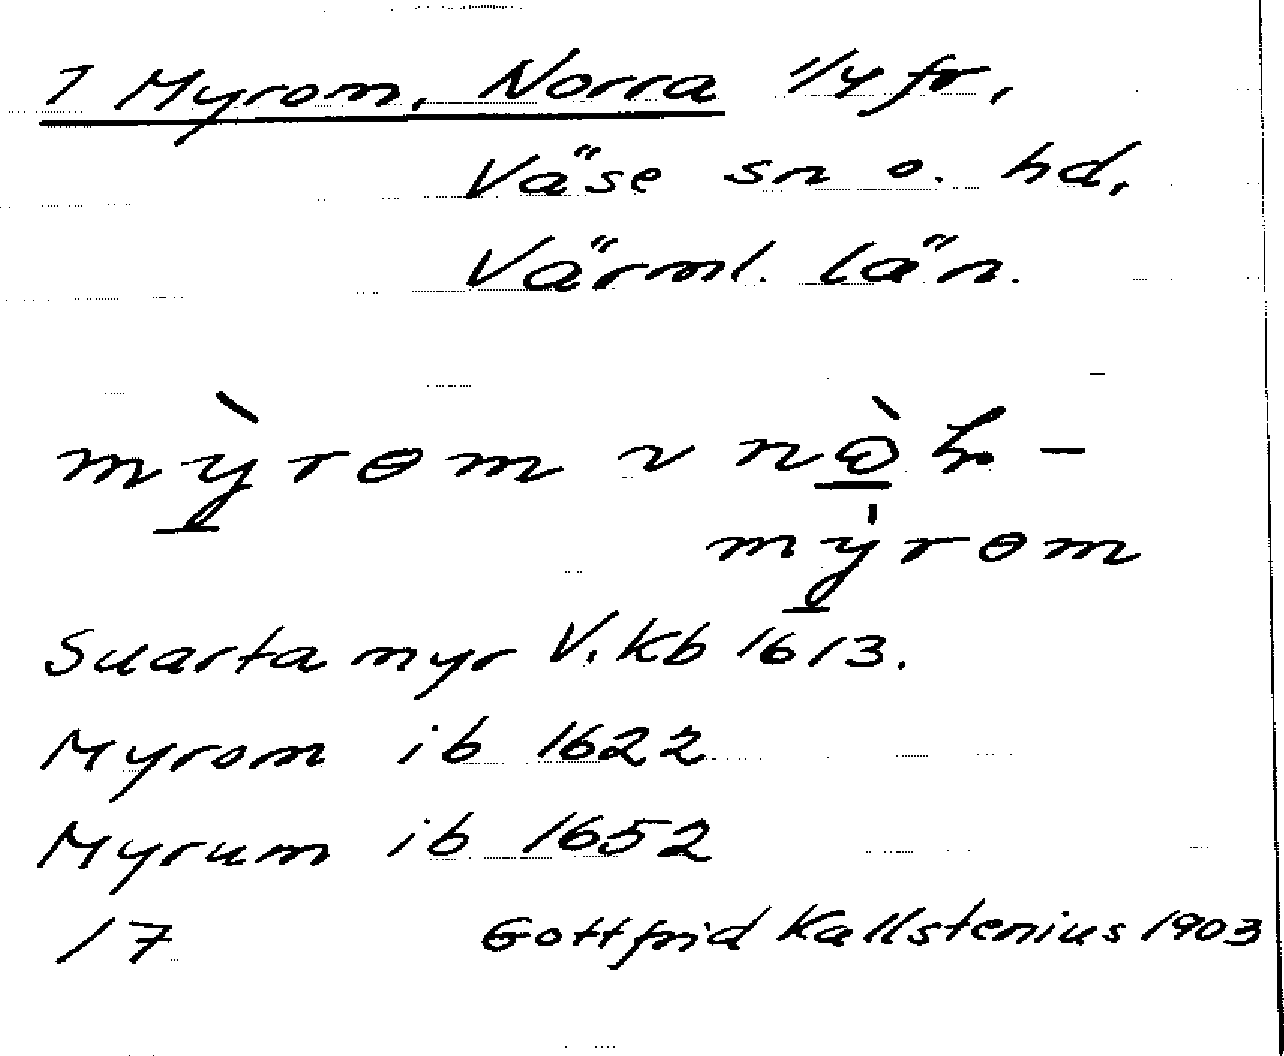 1 Myrom, Norra 1/4 fr,
Väse sn o. hd,
Värml. län.
mỳrɵm v
myrɵm
Suarta myr V. kb 1613.
Myrom ib 1622
Myrum ib 1652
/7 Gottfrid Kallstenius 1903